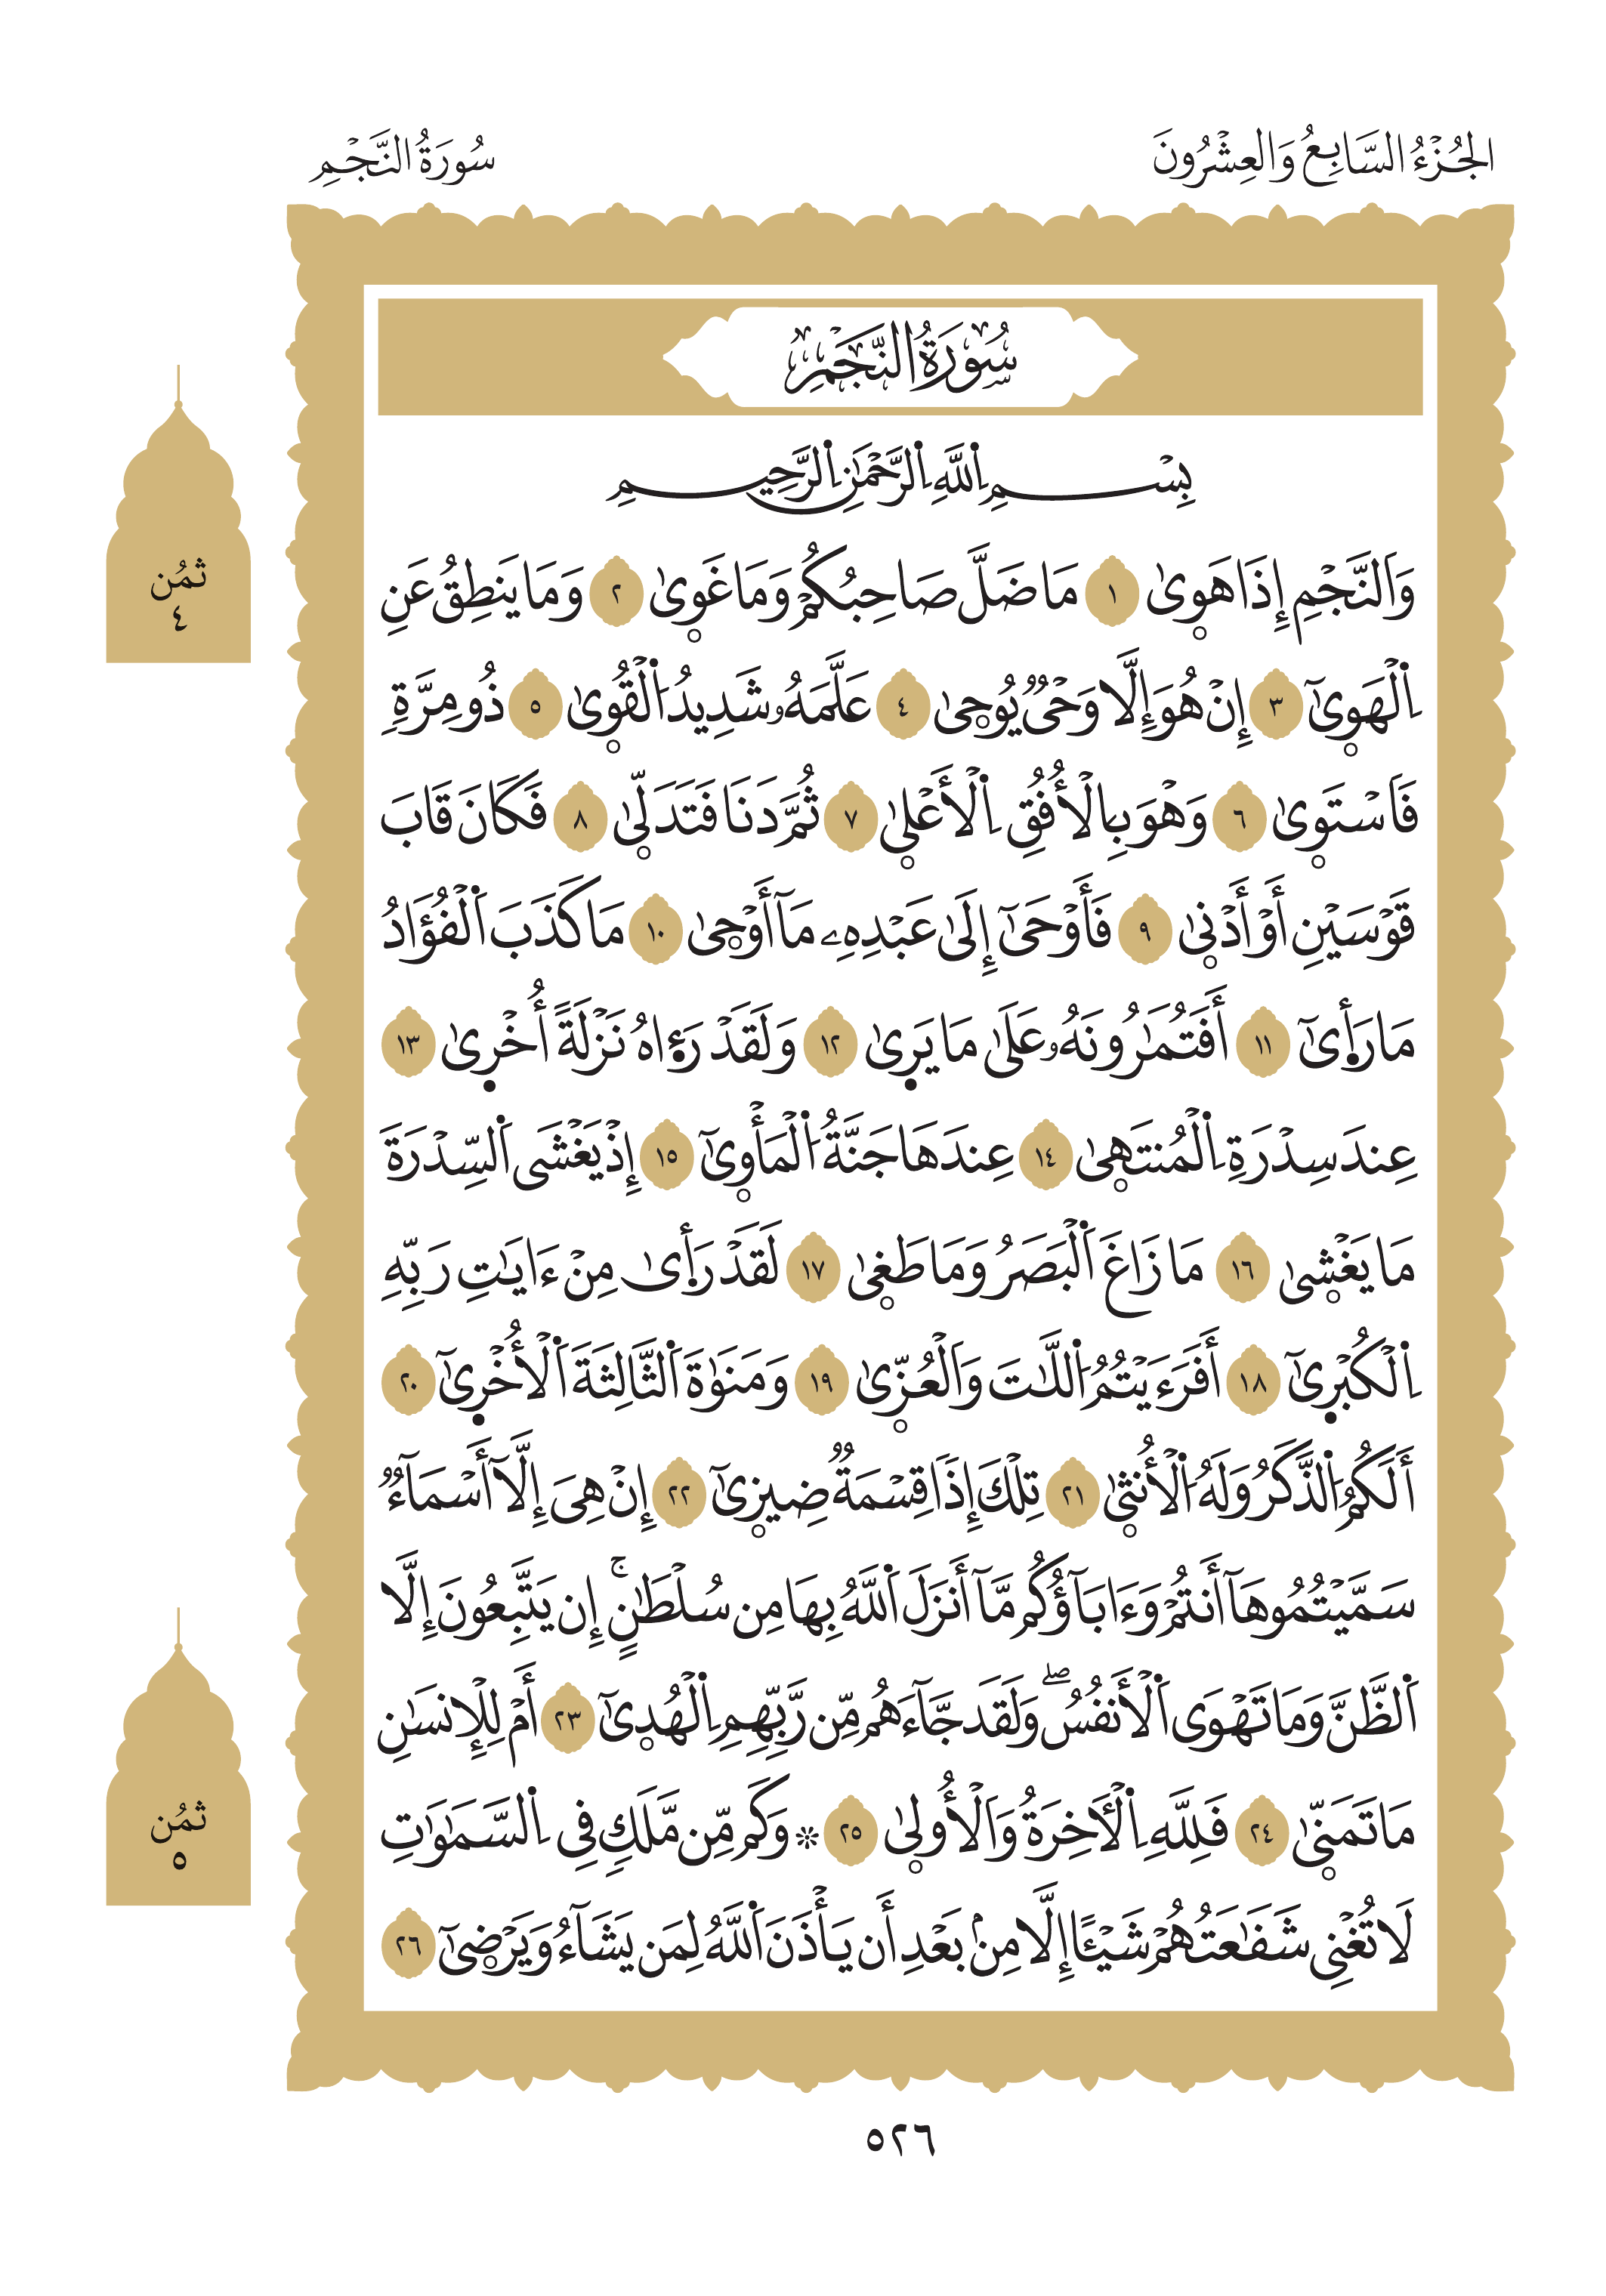 الجُزْءُ السَّابِعُ وَالعِشْرُونَ
سُورَةُ النَّجْمِ
سُورَةُ النَّجْمِ
بِسْمِ اِ۬للَّهِ اِ۬لرَّحْمَٰنِ اِ۬لرَّحِيمِ
وَالنَّجْمِ إِذَا هَوۭيٰ ١ مَا ضَلَّ صَاحِبُكُمْ وَمَا غَوۭيٰ ٢ وَمَا يَنطِقُ عَنِ
اِ۬لْهَوۭيٰٓ ٣ إِنْ هُوَ إِلَّا وَحْيٞ يُوحۭيٰ ٤ عَلَّمَهُۥ شَدِيدُ اُ۬لْقُوۭيٰ ٥ ذُو مِرَّةٖ
فَاسْتَوۭيٰ ٦ وَهْوَ بِالْأُفُقِ اِ۬لْأَعْلۭيٰ ٧ ثُمَّ دَنَا فَتَدَلّۭيٰ ٨ فَكَانَ قَابَ
قَوْسَيْنِ أَوْ أَدْنۭيٰ ٩ فَأَوْحَىٰٓ إِلَىٰ عَبْدِهِۦ مَآ أَوْحۭيٰ ١٠ مَا كَذَبَ اَ۬لْفُؤَادُ
مَا رَأٜىٰٓ ١١ أَفَتُمَٰرُونَهُۥ عَلَىٰ مَا يَرٜىٰ ١٢ وَلَقَدْ رَءٜاهُ نَزْلَةً أُخْرٜىٰ ١٣
عِندَ سِدْرَةِ اِ۬لْمُنتَهۭيٰ ١٤ عِندَهَا جَنَّةُ اُ۬لْمَأْوۭيٰٓ ١٥ إِذْ يَغْشَى اَ۬لسِّدْرَةَ
مَا يَغْشۭيٰ ١٦ مَا زَاغَ اَ۬لْبَصَرُ وَمَا طَغۭيٰ ١٧ لَقَدْ رَأٜىٰ مِنْ ءَايَٰتِ رَبِّهِ
اِ۬لْكُبْرٜىٰٓ ١٨ أَفَرَءَيْتُمُ اُ۬للَّٰتَ وَالْعُزّۭيٰ ١٩ وَمَنَوٰةَ اَ۬لثَّالِثَةَ اَ۬لْأُخْرٜىٰٓ ٢٠
أَلَكُمُ اُ۬لذَّكَرُ وَلَهُ اُ۬لْأُنثۭيٰ ٢١ تِلْكَ إِذاٗ قِسْمَةٞ ضِيزۭيٰٓ ٢٢ إِنْ هِيَ إِلَّآ أَسْمَآءٞ
سَمَّيْتُمُوهَآ أَنتُمْ وَءَابَآؤُكُم مَّآ أَنزَلَ اَ۬للَّهُ بِهَا مِن سُلْطَٰنٍۚ إِن يَتَّبِعُونَ إِلَّا
اَ۬لظَّنَّ وَمَا تَهْوَى اَ۬لْأَنفُسُۖ وَلَقَد جَّآءَهُم مِّن رَّبِّهِمِ اِ۬لْهُدۭيٰٓ ٢٣ أَمْ لِلْإِنسَٰنِ
مَا تَمَنّۭيٰ ٢٤ فَلِلَّهِ اِ۬لْأٓخِرَةُ وَالْأُولۭيٰ ٢٥ ۞ وَكَم مِّن مَّلَكٖ فِي اِ۬لسَّمَٰوَٰتِ
لَا تُغْنِي شَفَٰعَتُهُمْ شَيْـًٔا إِلَّا مِنۢ بَعْدِ أَن يَأْذَنَ اَ۬للَّهُ لِمَن يَشَآءُ وَيَرْضۭيٰٓ ٢٦
ثُمُن
٤
ثُمُن
٥
٥٢٦